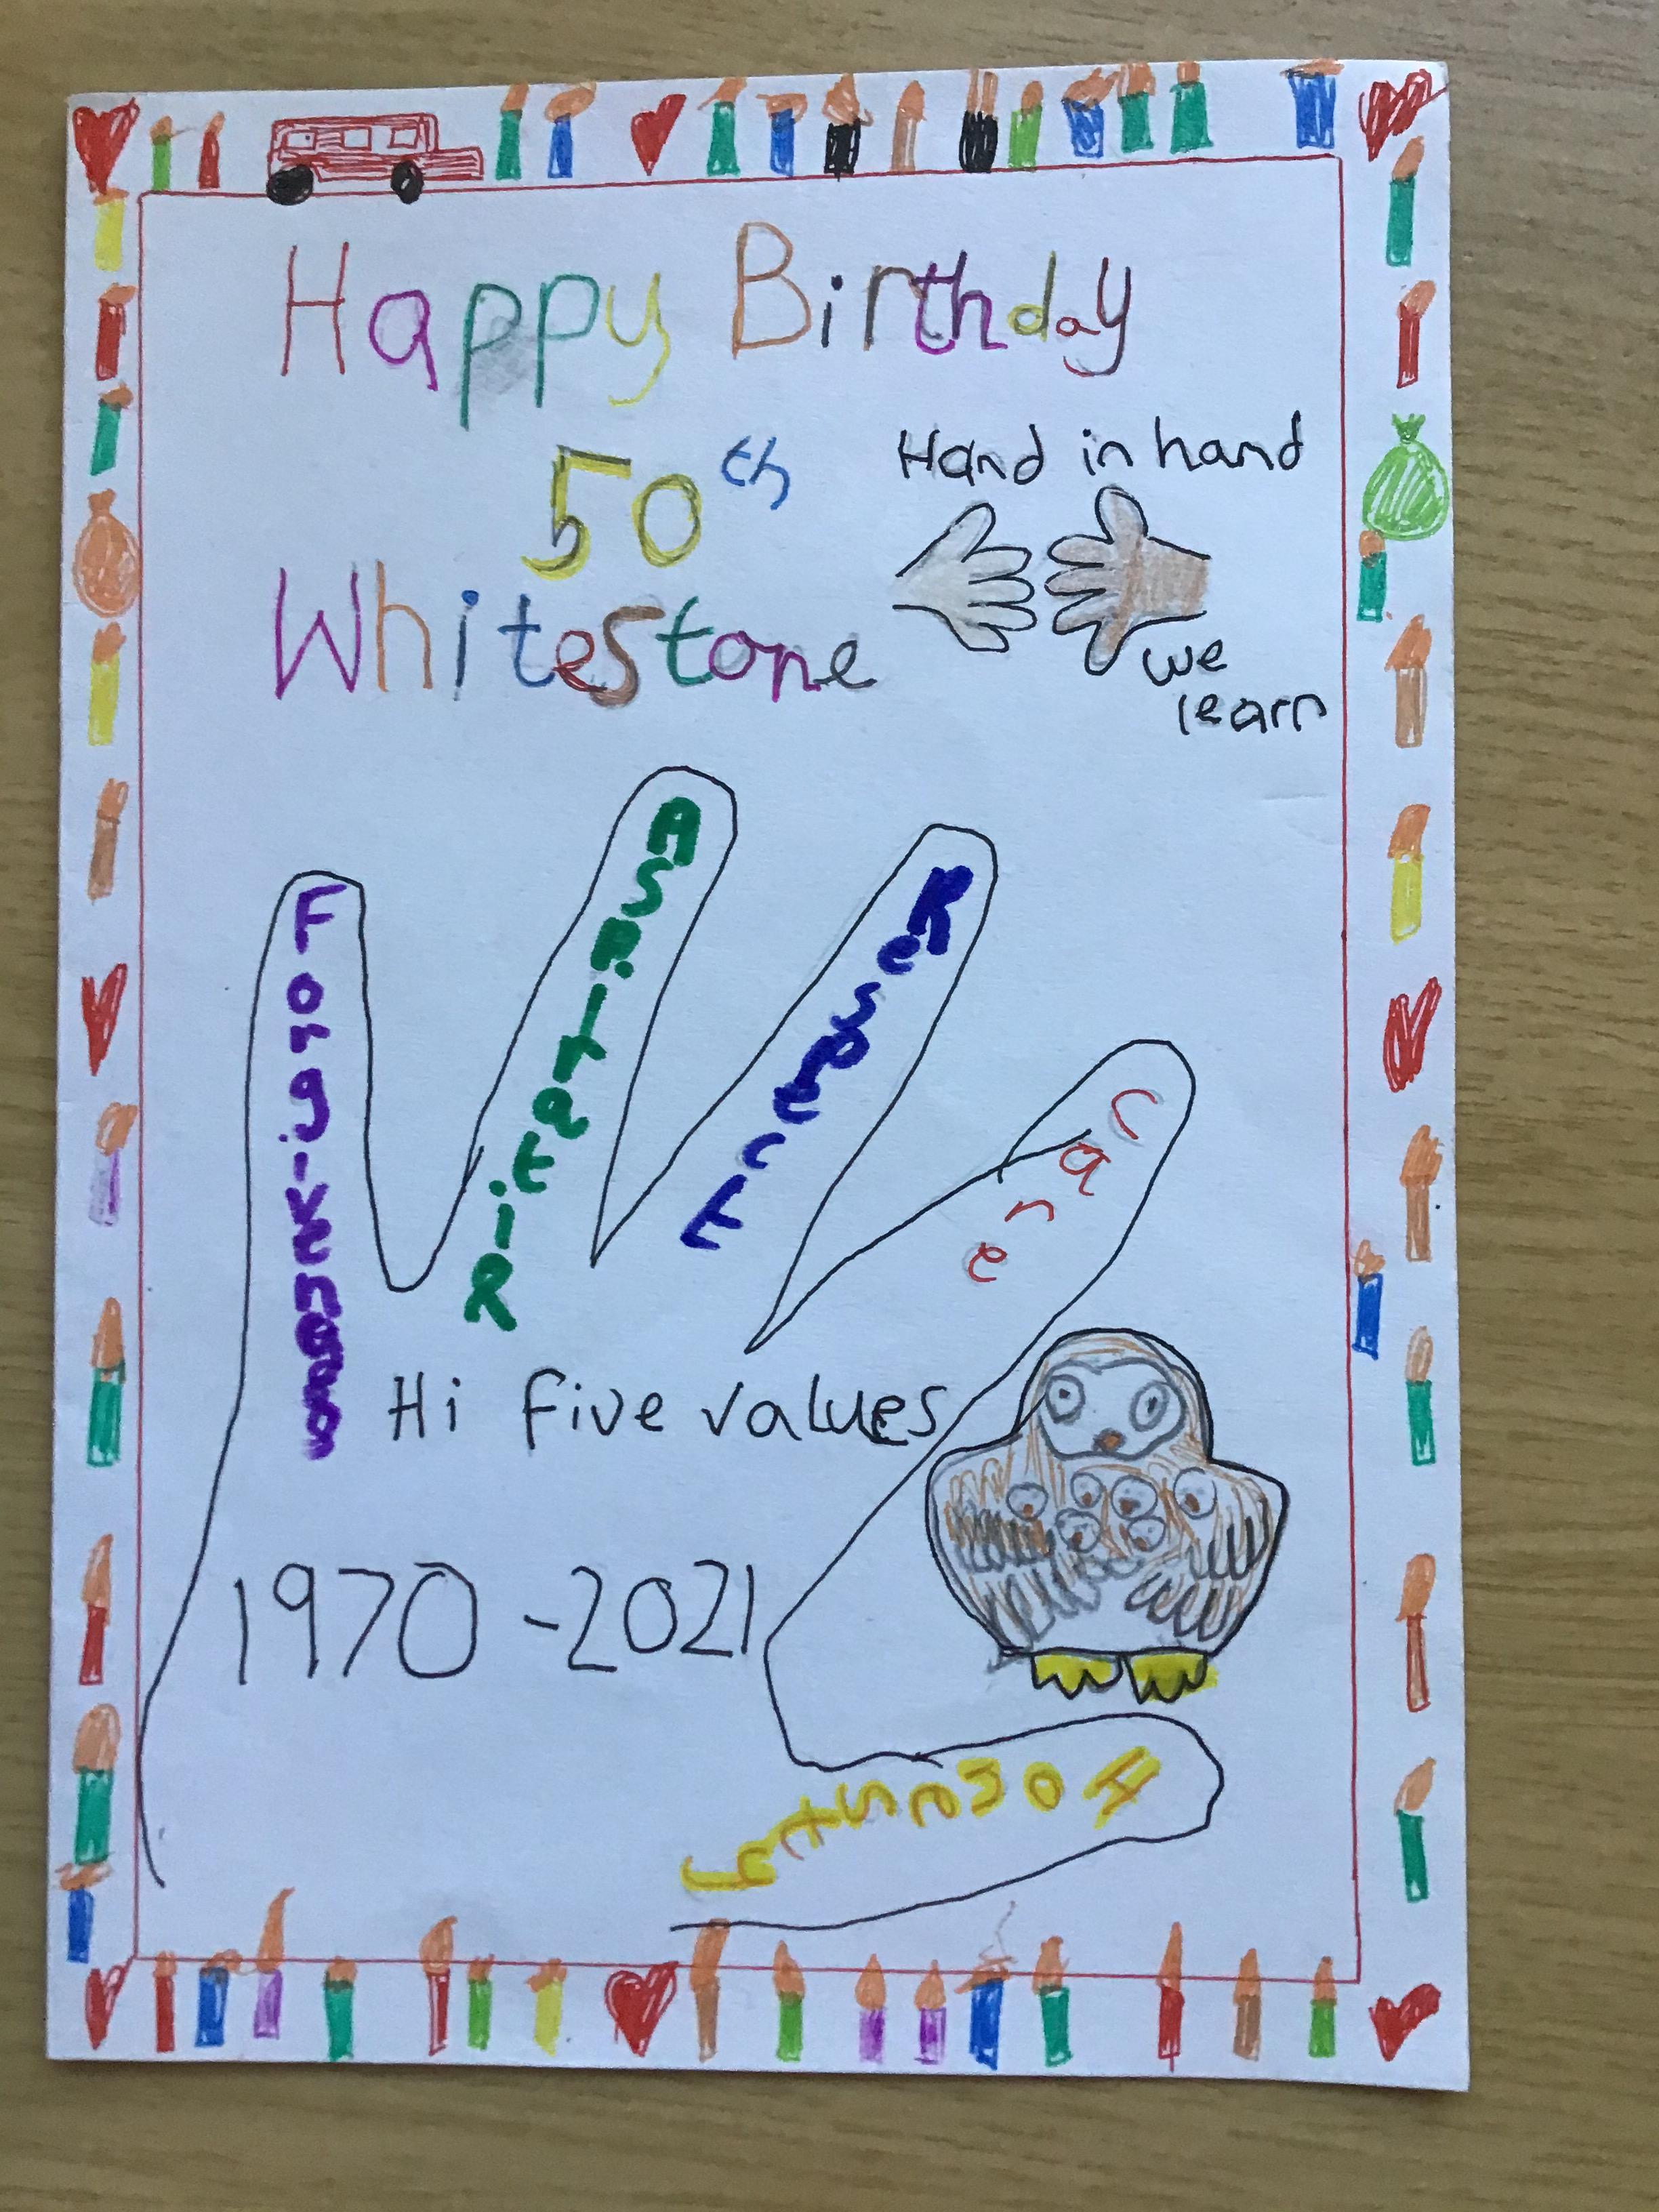 Happy Birthday
50th
Whitestone
Hand in hand
we
learn
Forgiveness
Aspiration
Respect
Care
Hi five values
1970-2021
Honesty